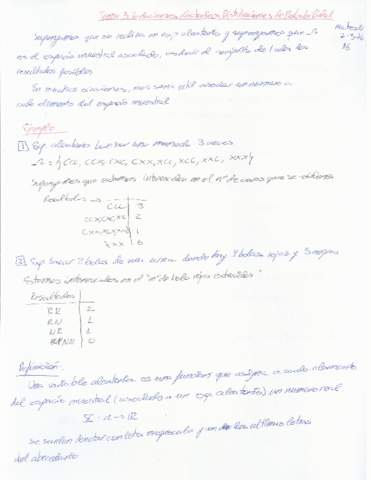 Tema 3 Variables aleatorias Distribuciones de Probabilidad
Martes
2-3-16
Supongamos que se realiza un exp aleatorio y supongamos que Ω
es el espacio muestral asociado, es decir el conjunto de todos los
resultados posibles
En muchas ocasiones, nos será útil asociar un número a
cada elemento del espacio muestral
Ejemplo
1 Exp. aleatorio lanzar una moneda 3 veces
Ω = {CCC, CCX, CXC, CXX, XCC, XXC, XXX}
Supongamos que estamos interesados en el nº de caras que se obtienen
Resultados →
CCC | 3
CCX, CXC, XCC | 2
CXX, | 1
XXX | 0
2 Exp Sacar 2 bolas de una urna donde hay 4 bolas rojas y 3 negras
Estamos interesados en el "nº de bolas rojas extraídas"
Resultados
RR | 2
RN | 1
NR | 1
NN | 0
Definición.
Una variable aleatoria es una función que asigna a cada elemento
del espacio muestral (asociado a un exp aleatorio) un número real
X: Ω → ℝ
Se suelen denotar con letra mayúscula y las últimas letras
del abecedario